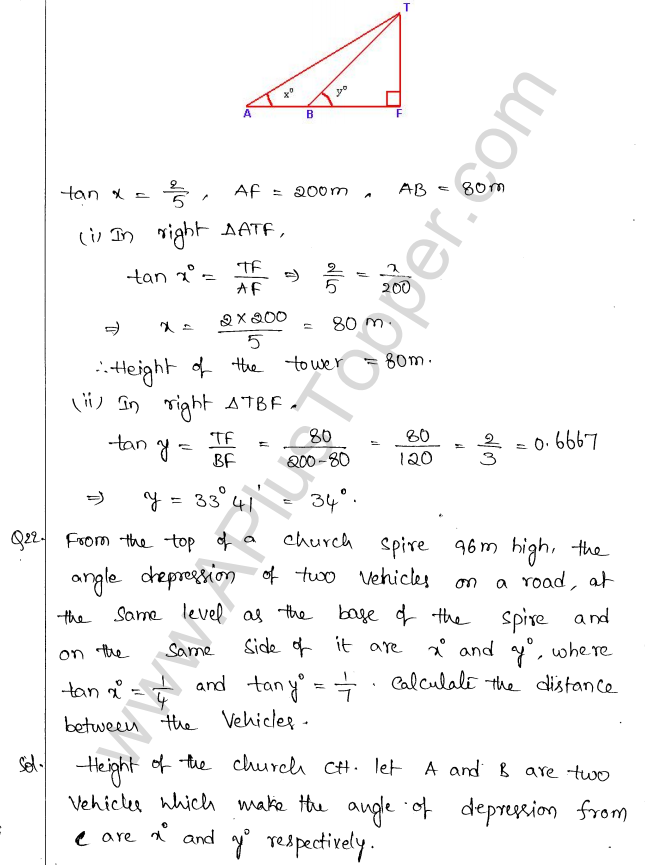 T
x° y°
A B F
tan x = 2/5, AF = 200m, AB = 80m
(i) In right ΔATF,
tan x° = TF/AF ⇒ 2/5 = x/200
⇒ x = 2×200/5 = 80 m.
∴ Height of the tower = 80m.
(ii) In right ΔTBF.
tan y = TF/BF = 80/200-80 = 80/120 = 2/3 = 0.6667
⇒ y = 33°41' = 34°.
Q22. From the top of a church spire 96m high, the
angle depression of two vehicles on a road, at
the same level as the base of the spire and
on the same side of it are x° and y°, where
tan x° = 1/4 and tan y° = 1/7. Calculate the distance
between the vehicles.
Sol. Height of the church CH. let A and B are two
vehicles which make the angle of depression from
C are x° and y° respectively.
www.APlusTopper.com